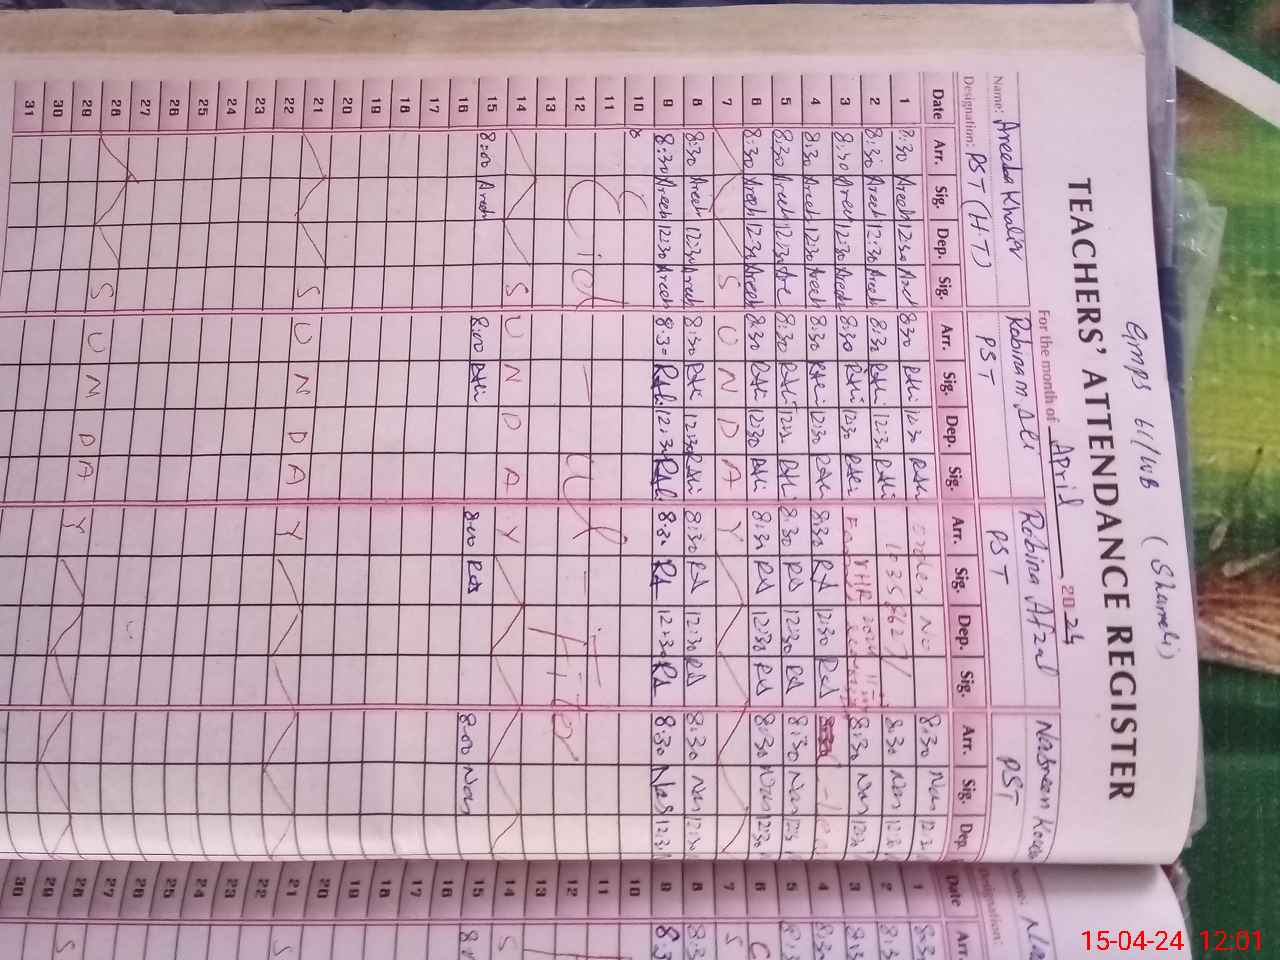 GMPS 61/WB (Shameli)
TEACHERS' ATTENDANCE REGISTER
For the month of April 2024
Name: Areeba Khaliq Robina m Ali Robina Afzal Nasreen
Designation: PST (H.T) PST PST PST
Date Arr. Sig. Dep. Sig. Arr. Sig. Dep. Sig. Arr. Sig. Dep. Sig. Arr. Sig. Dep
1 8:30 Areeb 12:30 8:30 RAli 12:30 RAli Order No 8:30 Nas 12:3
2 8:30 Areeb 12:30 Areeb 8:30 RAli 12:30 RAli 8:30 Nas 12:30
3 8:30 Areeb 12:30 Areeb 8:30 RAli 12:30 RAli 8:30 Nas 12:30
4 8:30 Areeb 12:30 Areeb 8:30 RAli 12:30 RAli 8:30 RA 12:30 RA
5 8:30 Areeb 12:30 8:30 RAli 12:30 RAli 8:30 RA 12:30 RA 8:30 Nas 12:3
6 8:30 Areeb 12:30 Areeb 8:30 RAli 12:30 RAli 8:30 RA 12:30 RA 8:30 Nas 12:30
7 S U N D A Y
8 8:30 Areeb 12:30 Areeb 8:30 RAli 12:30 RAli 8:30 RA 12:30 RA 8:30 Nas 12:30
9 8:30 Areeb 12:30 Areeb 8:30 RAli 12:30 RAli 8:30 RA 12:30 RA 8:30 Nas 12:3
10
11
12 Eid - Ul - Fiter
13
14 S U N D A Y
15 8:00 Areeb 8:00 RAli 8:00 RA 8:00 Nas
16
17
18
19
20
21 S U N D A Y
22
23
24
25
26
27
28 S U N D A Y
29
30
31
Date Arr.
Designation:
1 8:3
2 8:3
3 8:3
4 8:3
5 8:3
6
7 S
8 8:3
9 8:3
10
11
12
13
14 S
15
16
17
18
19
20
21 S
22
23
24
25
26
27
28 S
29
30
15-04-24 12:01